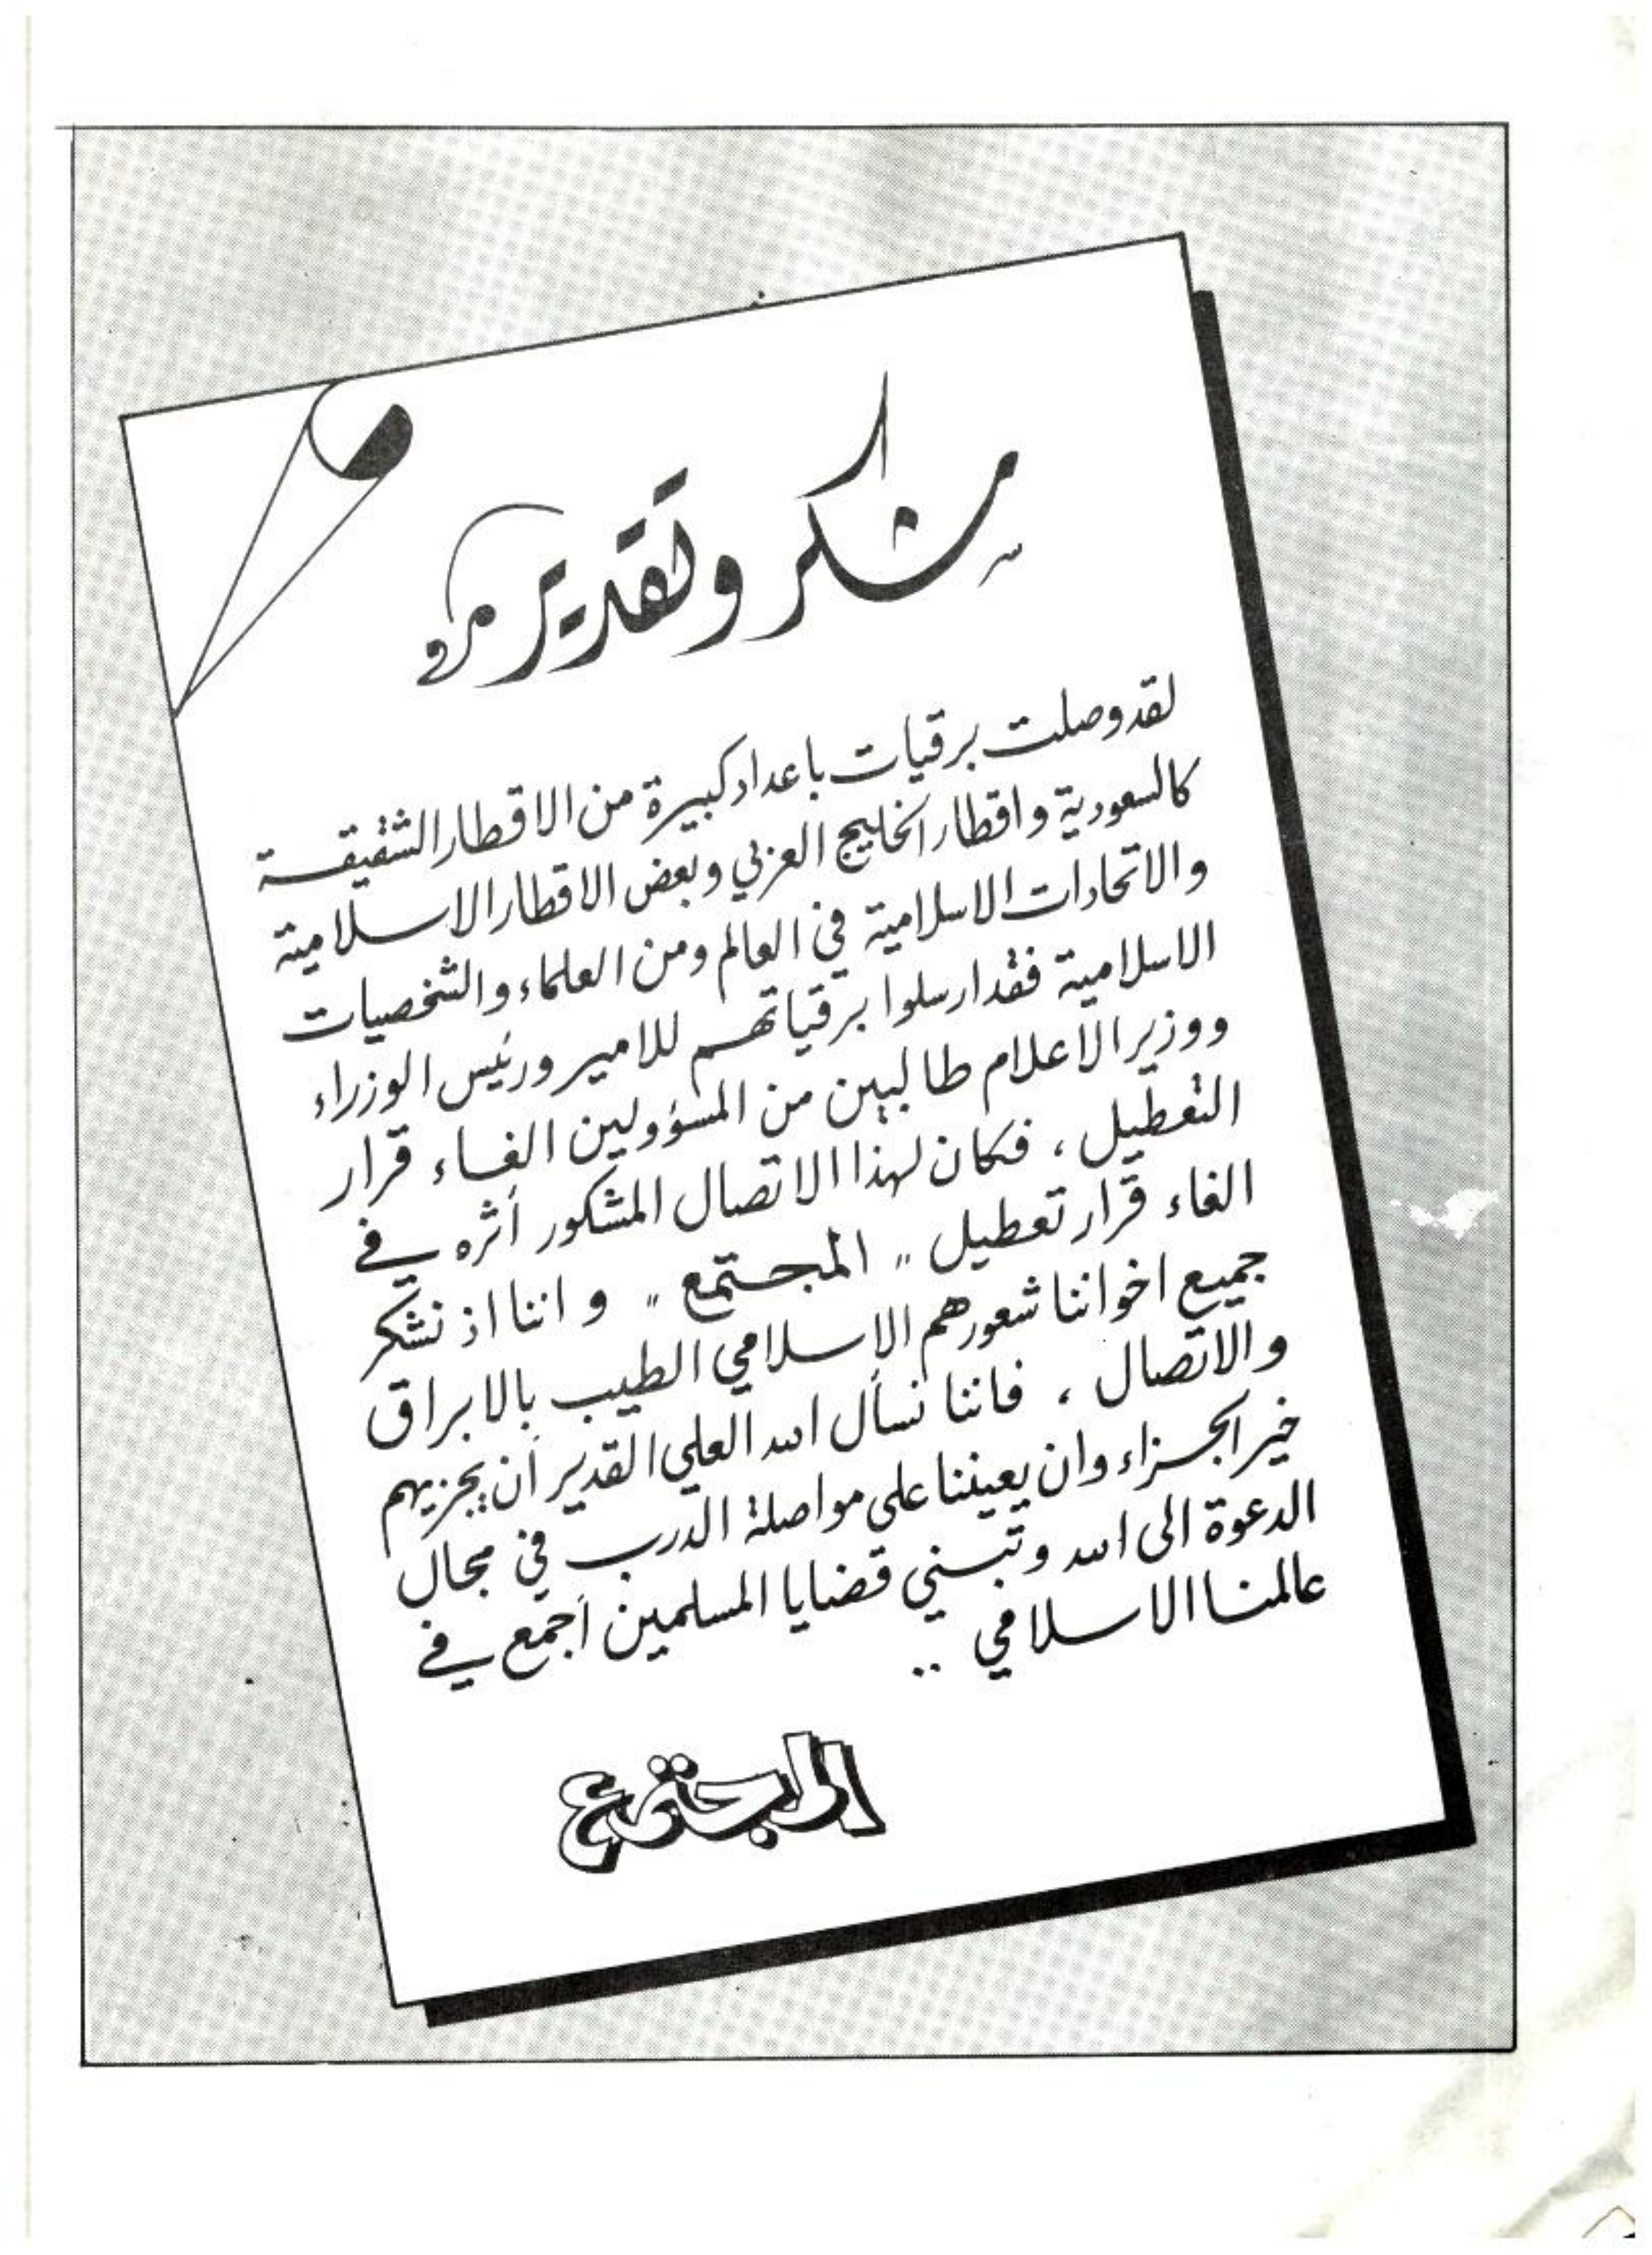 شكر وتقدير
لقد وصلت برقيات باعداد كبيرة من الاقطار الشقيقة
كالسعودية واقطار الخليج العربي وبعض الاقطار الاسلامية
والاتحادات الاسلامية في العالم ومن العلماء والشخصيات
الاسلامية فقد ارسلوا برقياتهم للامير ورئيس الوزراء
ووزير الاعلام طالبين من المسؤولين الغاء قرار
التعطيل ، فكان لهذا الاتصال المشكور أثره في
الغاء قرار تعطيل " المجتمع " واننا اذ نشكر
جميع اخواننا شعورهم الإسلامي الطيب بالابراق
والاتصال ، فاننا نسأل الله العلي القدير أن يجزيهم
خير الجزاء وان يعيننا على مواصلة الدرب في مجال
الدعوة الى الله وتبني قضايا المسلمين أجمع في
عالمنا الاسلامي ..
المجتمع